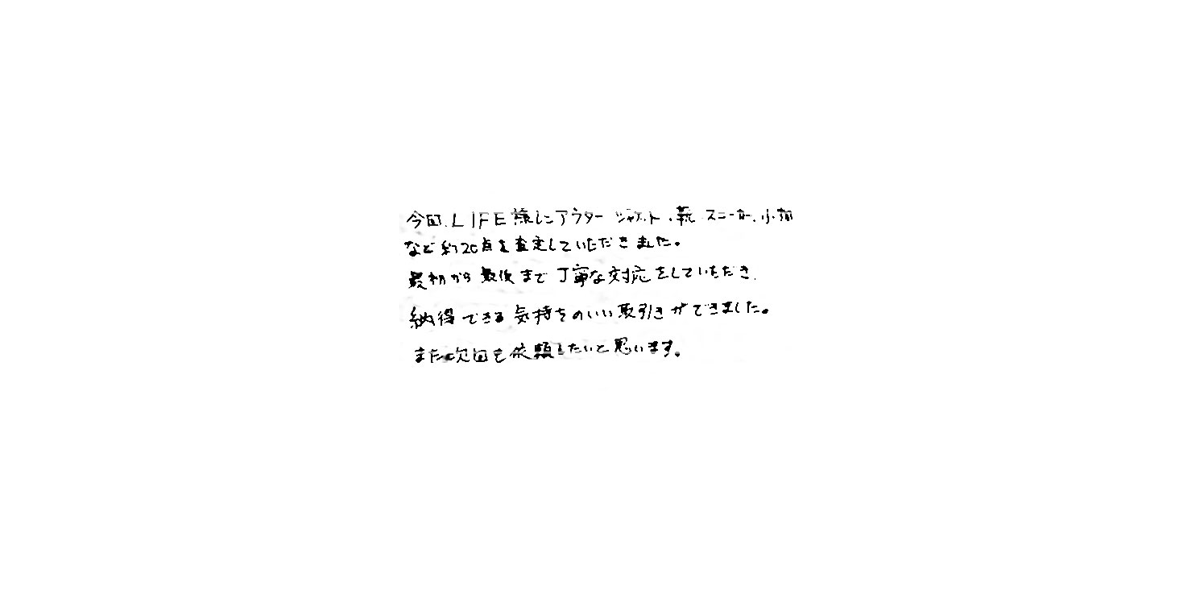 今回、LIFE様にアウター ジャケット・靴 スニーカー、小物
など約20点を査定していただきました。
最初から最後まで丁寧な対応をしていただき、
納得できる気持ちのいい取引きができました。
また次回も依頼したいと思います。